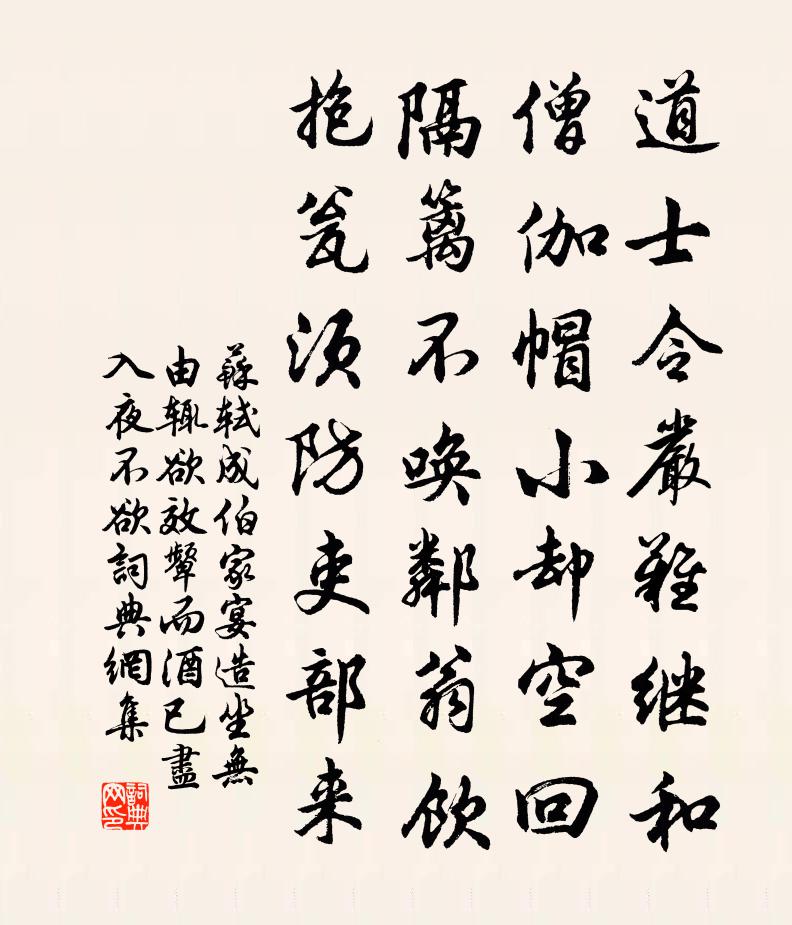 道士令嚴難继和
僧伽帽小却空回
隔篱不唤鄰翁飲
抱瓮须防吏部来
蘇轼成伯家宴造坐無
由辄欲效顰而酒已盡
入夜不欲詞典網集
詞典网印